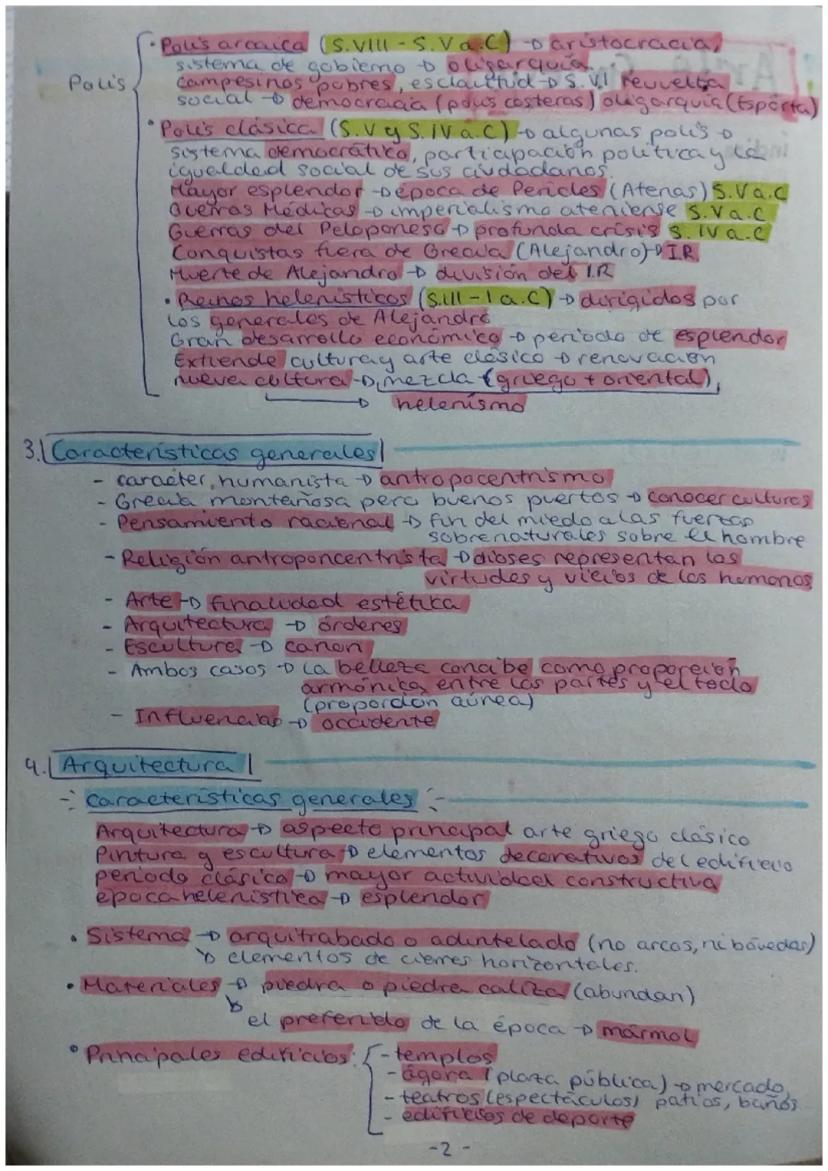 Polis
· Polis arcaica (S.VIII - S.V a.C) → aristocracia,
sistema de gobierno → oligarquía.
campesinos pobres, esclavitud → S.VI revuelta
social → democracia (polis costeras) oligarquía (Esparta)
· Polis clásica (S.V y S.IV a.C) → algunas polis →
sistema democrático, participación política y la
igualdad social de sus ciudadanos.
Mayor esplendor → época de Pericles (Atenas) S.V a.C
Guerras Médicas → imperialismo ateniense S.V a.C
Guerras del Peloponeso → profunda crisis S.IV a.C
Conquistas fuera de Grecia (Alejandro) → I.R
Muerte de Alejandro → división del I.R
· Reinos helenísticos (S.III - I a.C) → dirigidos por
los generales de Alejandro
Gran desarrollo económico → período de esplendor
Extiende cultura y arte clásico → renovación
nueva cultura → mezcla (griego + oriental),
→ helenismo
3. Características generales
- carácter humanista → antropocentrismo
- Grecia montañosa pero buenos puertos → conocer culturas
- Pensamiento racional → fin del miedo a las fuerzas
sobrenaturales sobre el hombre
- Religión antroponcentrista → dioses representan las
virtudes y vicios de los humanos
- Arte → finalidad estética
- Arquitectura → órderes
- Escultura → canon
- Ambos casos → la belleza concibe como proporción
armónica entre las partes y el todo
(proporción aúrea)
- Influencias → occidente
4. Arquitectura
-: características generales :-
Arquitectura → aspecto principal arte griego clásico
Pintura y escultura → elementos decorativos del edificio
período clásico → mayor actividad constructiva
época helenística → esplendor
· Sistema → arquitrabado o adintelado (no arcos, ni bóvedas)
↳ elementos de cierres horizontales.
· Materiales → piedra o piedra caliza (abundan)
↳ el preferido de la época → mármol
· Principales edificios:
- templos
- ágora (plaza pública) → mercado,
- teatros (espectáculos) patios, baños
- edificios de deporte
- 2 -